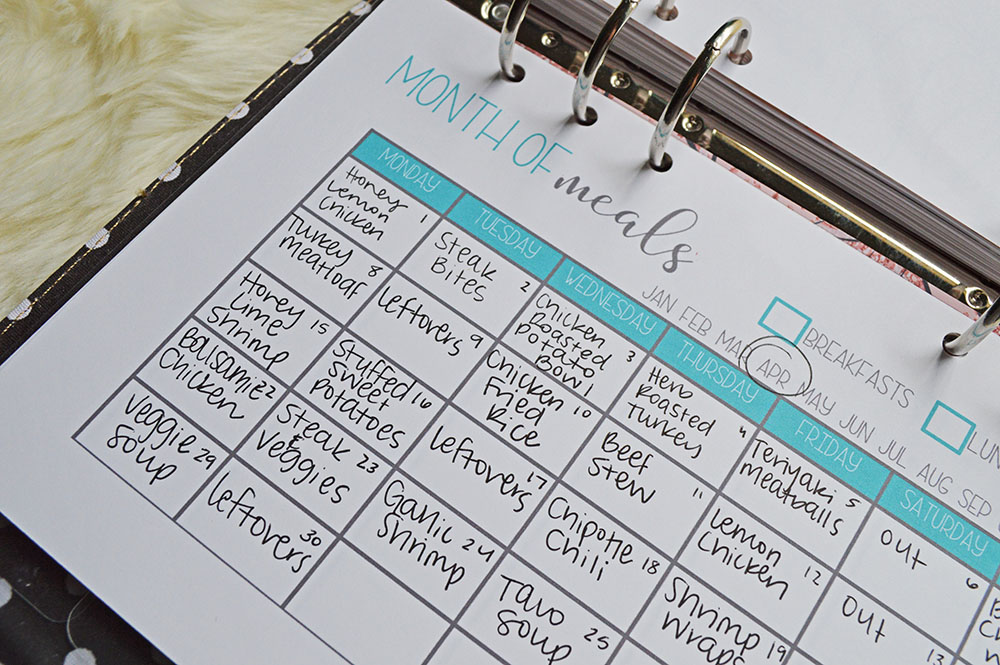 MONTH OF meals
BREAKFASTS
JAN FEB MAR APR MAY JUN JUL AUG SEP
MONDAY TUESDAY WEDNESDAY THURSDAY FRIDAY SATURDAY
Honey Lemon Chicken 1
Steak Bites 2
Chicken Roasted Potato Bowl 3
Herb Roasted Turkey 4
Teriyaki Meatballs 5
out 6
Turkey meatloaf 8
leftovers 9
Chicken Fried Rice 10
Beef Stew 11
Lemon Chicken 12
out 13
Honey Lime Shrimp 15
Stuffed Sweet Potatoes 16
leftovers 17
Chipotle Chili 18
Shrimp Wraps 19
Balsamic Chicken 22
Steak & Veggies 23
Garlic Shrimp 24
Taco Soup 25
Veggie Soup 29
leftovers 30